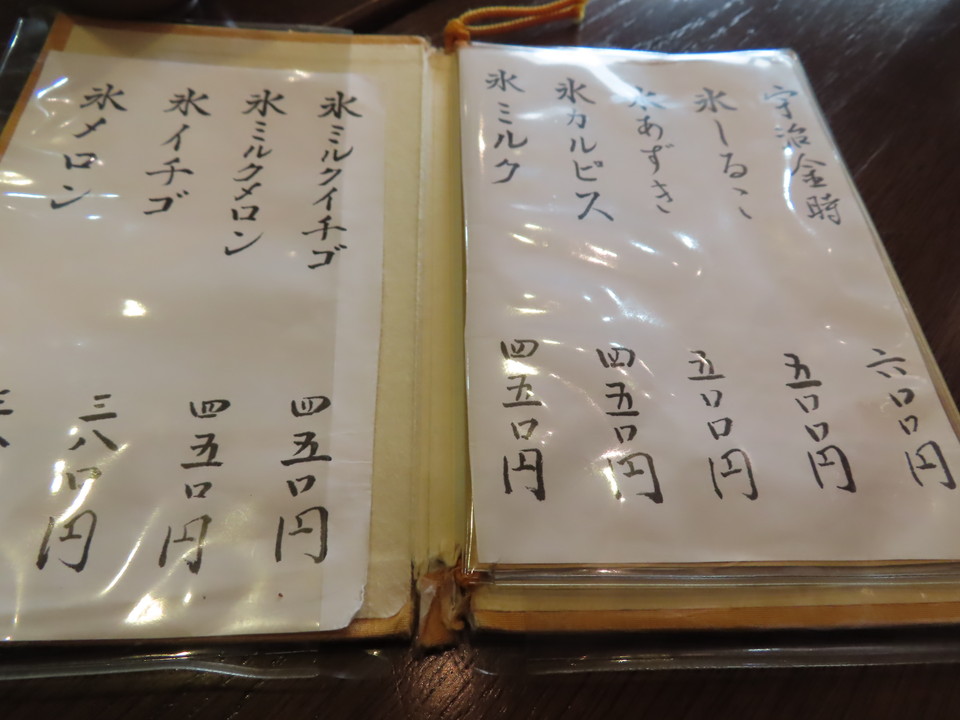 宇治金時 六〇〇円
氷しるこ 五〇〇円
氷あずき 五〇〇円
氷カルピス 四五〇円
氷ミルク 四五〇円
氷ミルクイチゴ 四五〇円
氷ミルクメロン 四五〇円
氷イチゴ 三八〇円
氷メロン 三八